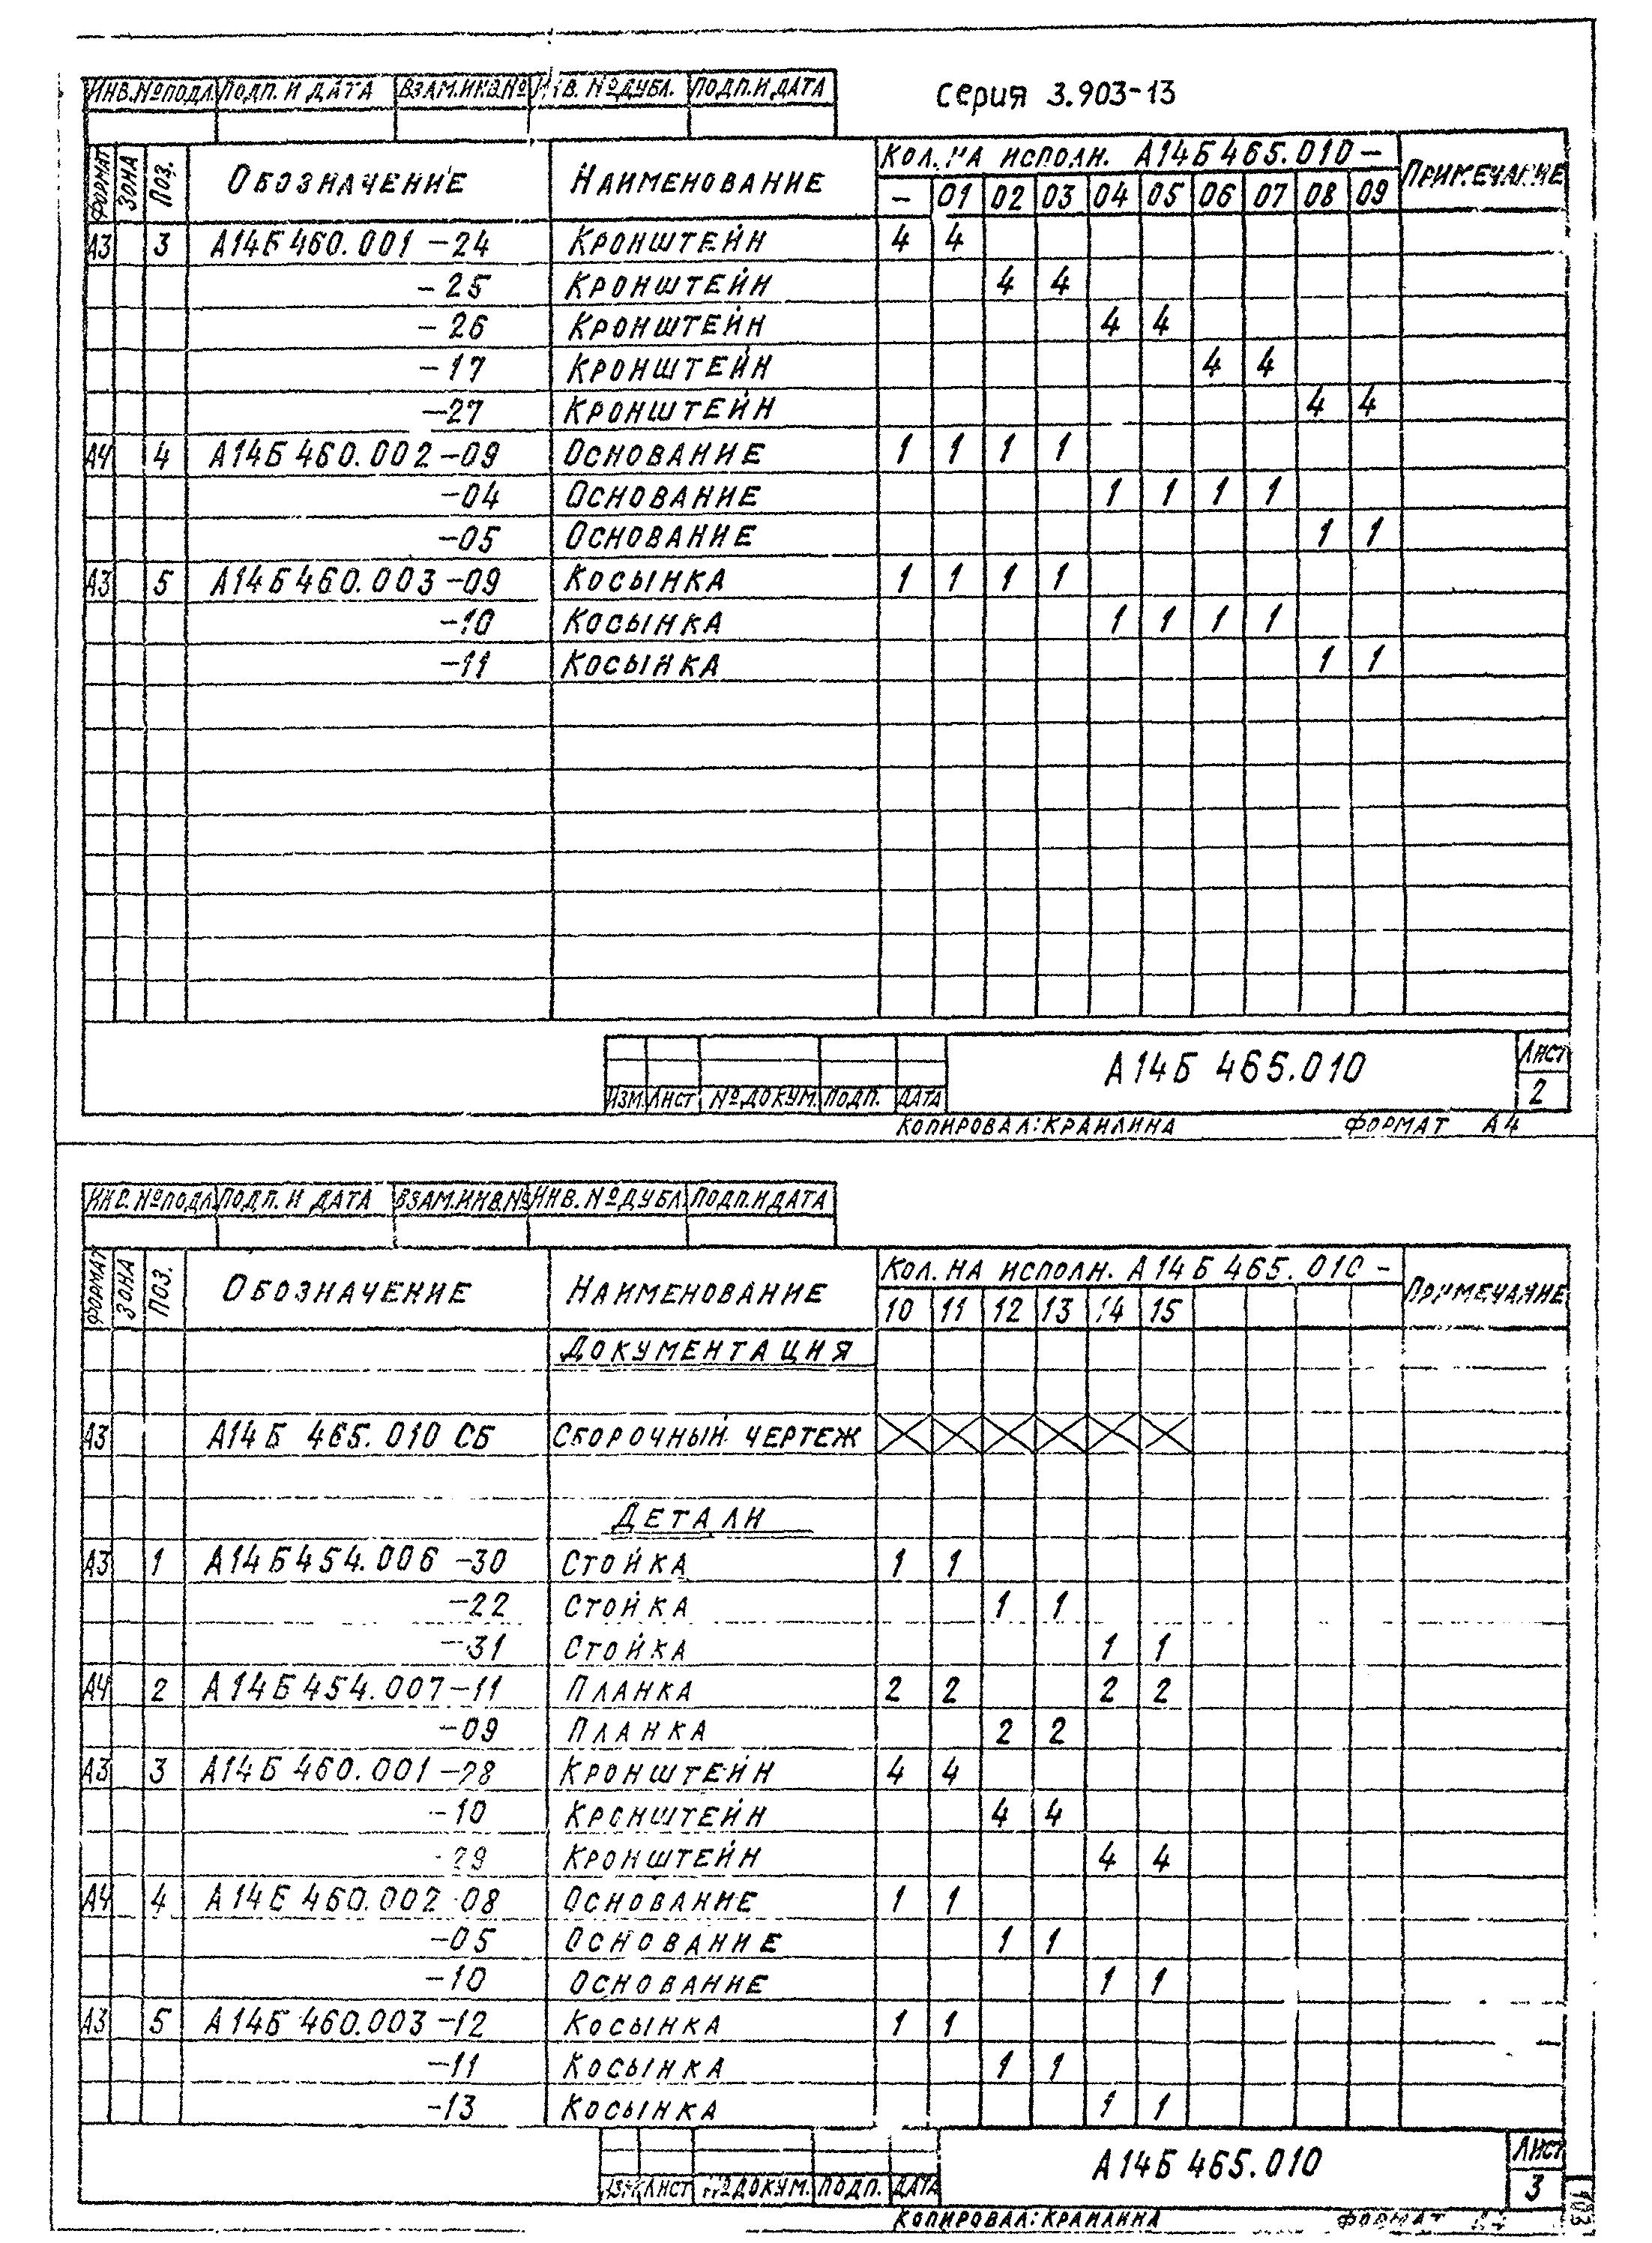 серия 3.903-13
ИНВ.№ПОДЛ. ПОДП. И ДАТА ВЗАМ.ИНВ.№ ИНВ. №ДУБЛ. ПОДП.И ДАТА
ФОРМАТ ЗОНА ПОЗ. ОБОЗНАЧЕНИЕ НАИМЕНОВАНИЕ КОЛ. НА ИСПОЛН. А14Б465.010 – ПРИМЕЧАНИЕ
– 01 02 03 04 05 06 07 08 09
А3 3 А14Б460.001 –24 КРОНШТЕЙН 4 4
–25 КРОНШТЕЙН 4 4
–26 КРОНШТЕЙН 4 4
–17 КРОНШТЕЙН 4 4
–27 КРОНШТЕЙН 4 4
А4 4 А14Б460.002–09 ОСНОВАНИЕ 1 1 1 1
–04 ОСНОВАНИЕ 1 1 1 1
–05 ОСНОВАНИЕ 1 1
А3 5 А14Б460.003–09 КОСЫНКА 1 1 1 1
–10 КОСЫНКА 1 1 1 1
–11 КОСЫНКА 1 1
А14Б 465.010 ЛИСТ
2
ИЗМ. ЛИСТ №ДОКУМ. ПОДП. ДАТА
КОПИРОВАЛ: КРАИЛИНА ФОРМАТ А4
ИНВ. №ПОДЛ. ПОДП. И ДАТА ВЗАМ.ИНВ.№ ИНВ. №ДУБЛ. ПОДП.И ДАТА
ФОРМАТ ЗОНА ПОЗ. ОБОЗНАЧЕНИЕ НАИМЕНОВАНИЕ КОЛ. НА ИСПОЛН. А14Б465.010 – ПРИМЕЧАНИЕ
10 11 12 13 14 15
ДОКУМЕНТАЦИЯ
А3 А14Б 465.010 СБ СБОРОЧНЫЙ ЧЕРТЕЖ
ДЕТАЛИ
А3 1 А14Б454.006 –30 СТОЙКА 1 1
–22 СТОЙКА 1 1
–31 СТОЙКА 1 1
А4 2 А14Б454.007–11 ПЛАНКА 2 2 2 2
–09 ПЛАНКА 2 2
А3 3 А14Б 460.001–28 КРОНШТЕЙН 4 4
–10 КРОНШТЕЙН 4 4
–29 КРОНШТЕЙН 4 4
А4 4 А14Б 460.002–08 ОСНОВАНИЕ 1 1
–05 ОСНОВАНИЕ 1 1
–10 ОСНОВАНИЕ 1 1
А3 5 А14Б 460.003–12 КОСЫНКА 1 1
–11 КОСЫНКА 1 1
–13 КОСЫНКА 1 1
А14Б 465.010 ЛИСТ
3
ИЗМ. ЛИСТ №ДОКУМ. ПОДП. ДАТА
КОПИРОВАЛ: КРАИЛИНА ФОРМАТ А4